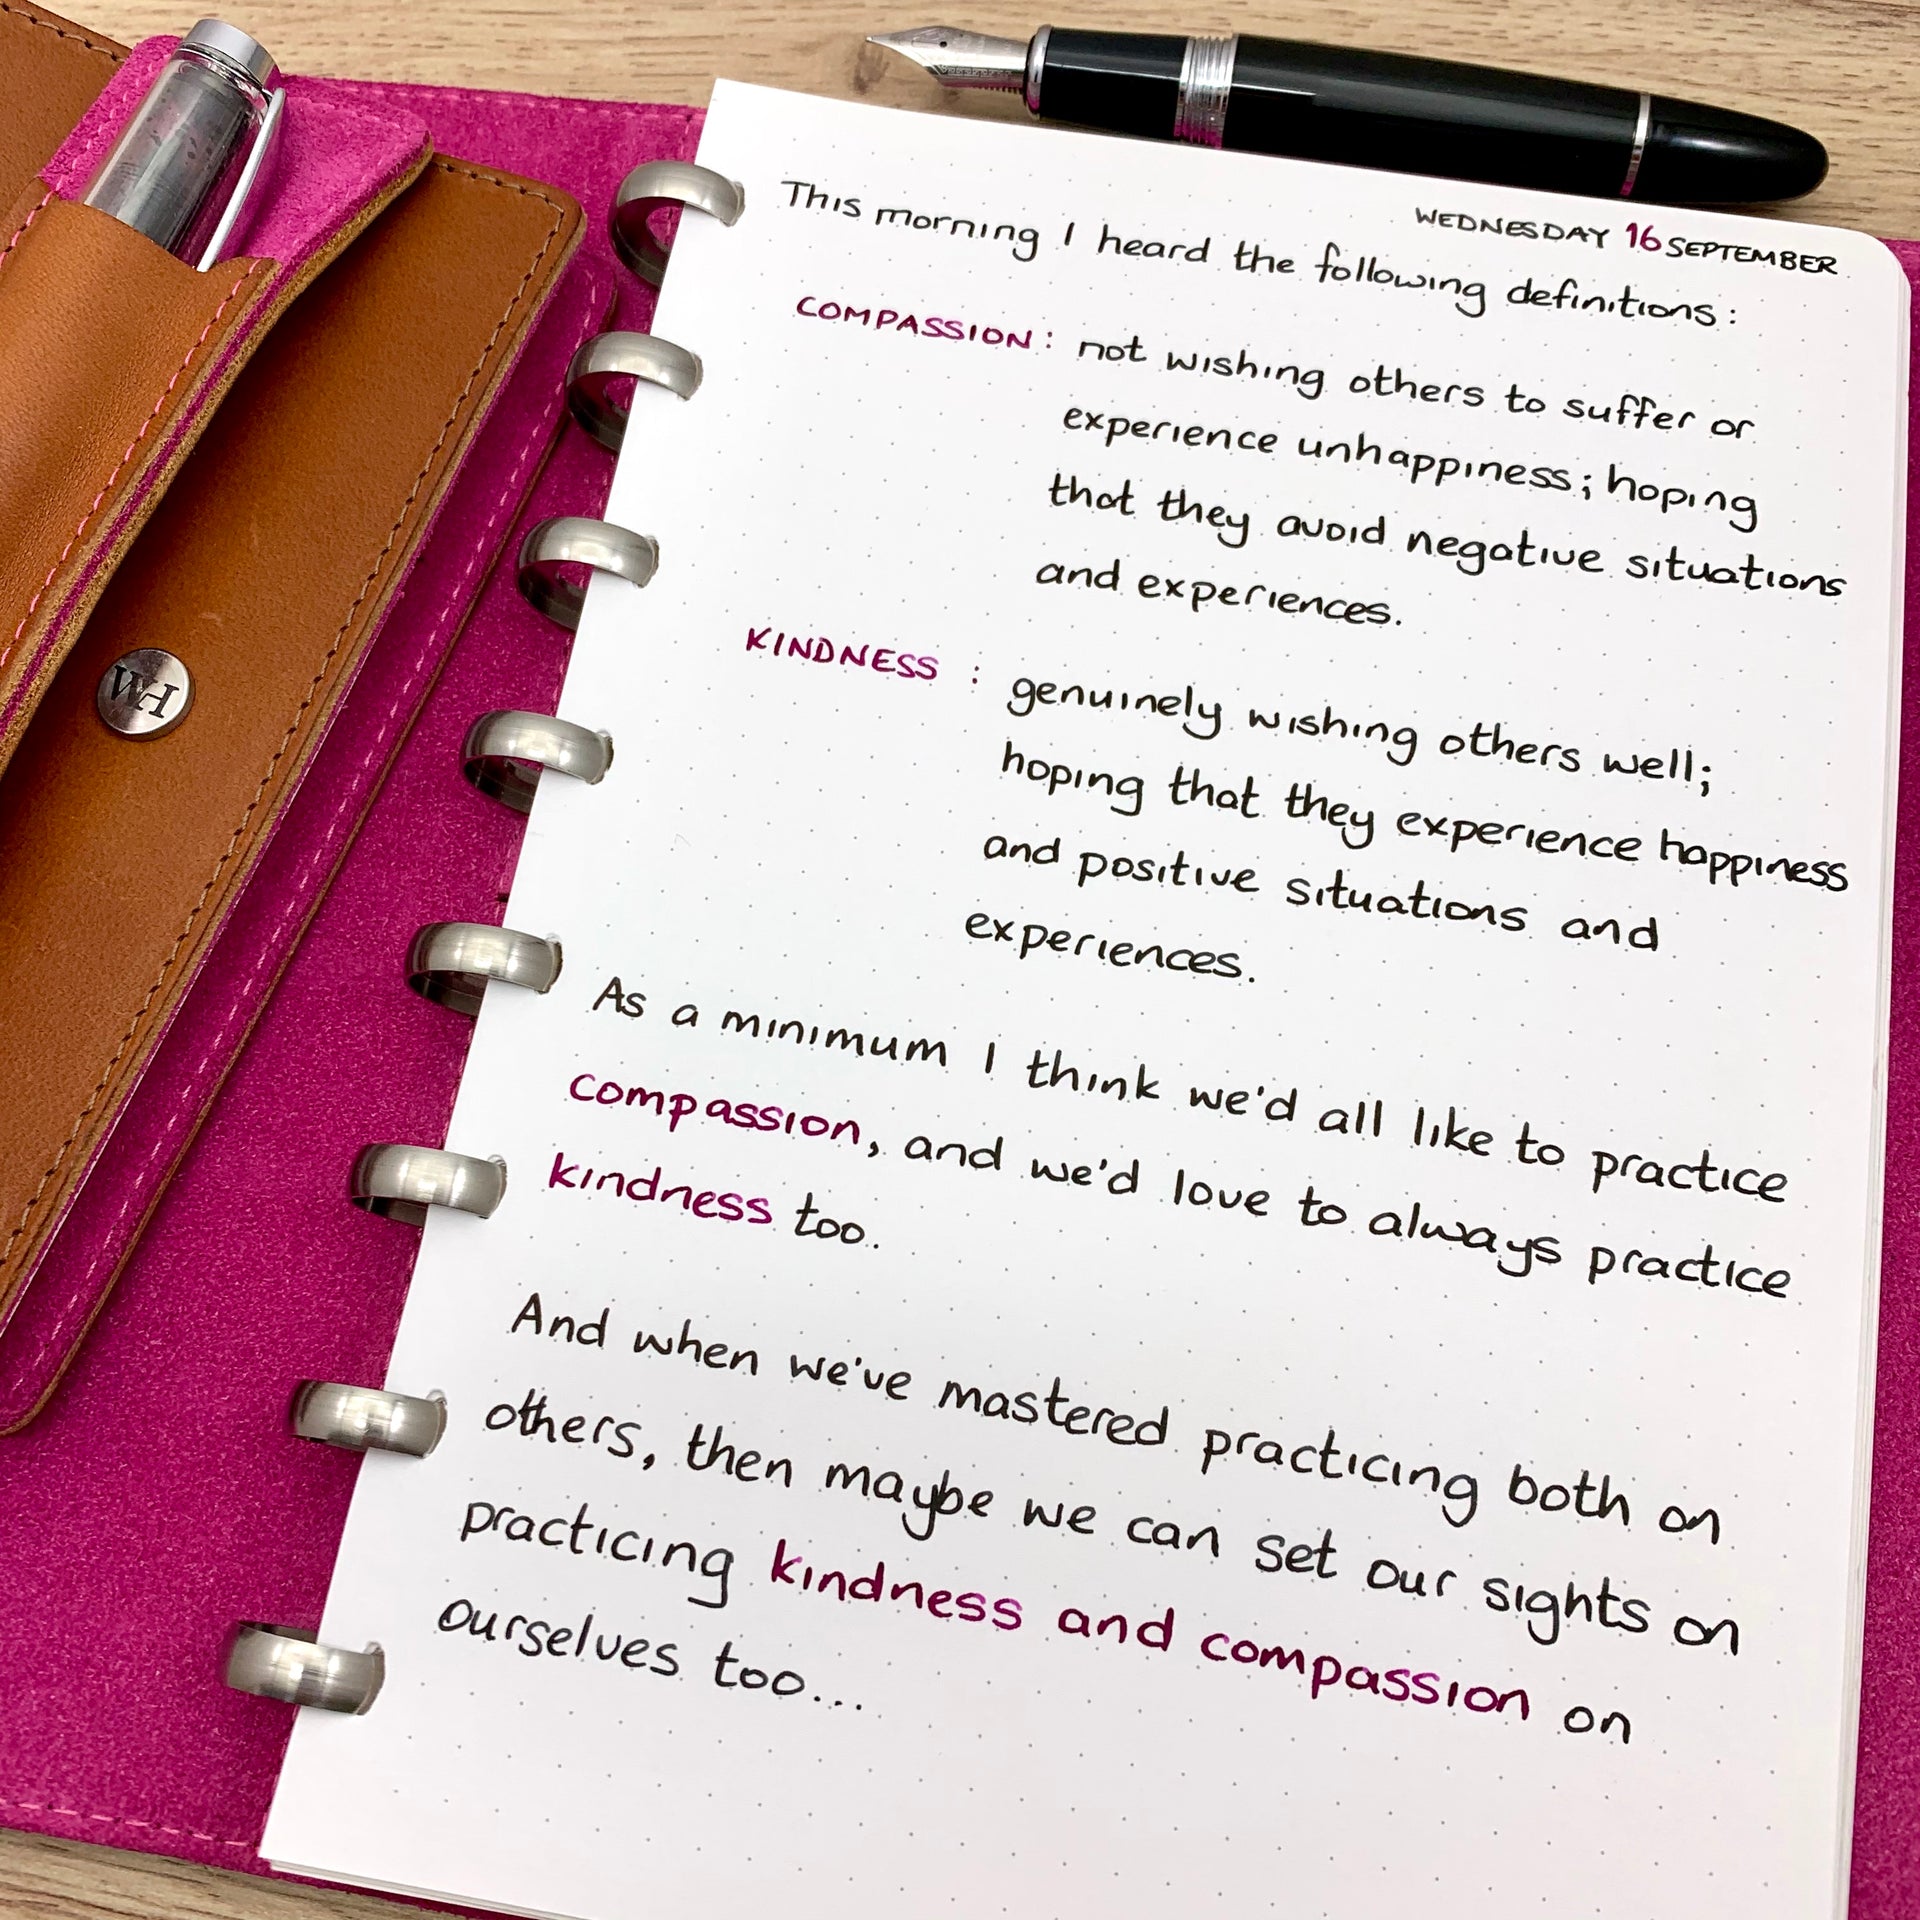 WEDNESDAY 16 SEPTEMBER
This morning I heard the following definitions:
COMPASSION: not wishing others to suffer or
experience unhappiness; hoping
that they avoid negative situations
and experiences.
KINDNESS : genuinely wishing others well;
hoping that they experience happiness
and positive situations and
experiences.
As a minimum I think we'd all like to practice
compassion, and we'd love to always practice
kindness too.
And when we've mastered practicing both on
others, then maybe we can set our sights on
practicing kindness and compassion on
ourselves too...
WH